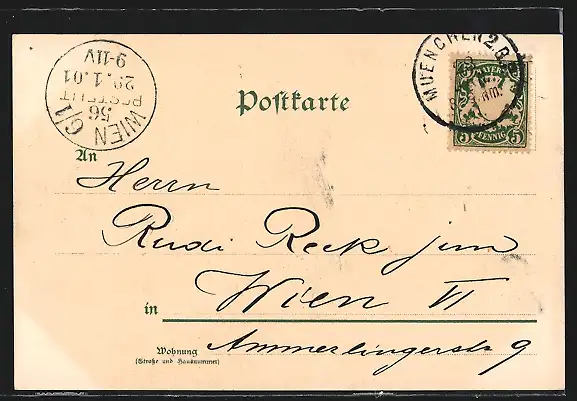 MUENCHEN 2. B.
BAYERN
5 5
PFENNIG
WIEN 6/1
56
BESTELLT
29.1.01
9-11V
Postkarte
An
Herrn
Rudi Reck jun
in Wien VI
Wohnung
(Straße und Hausnummer)
Ammerlingerstr 9